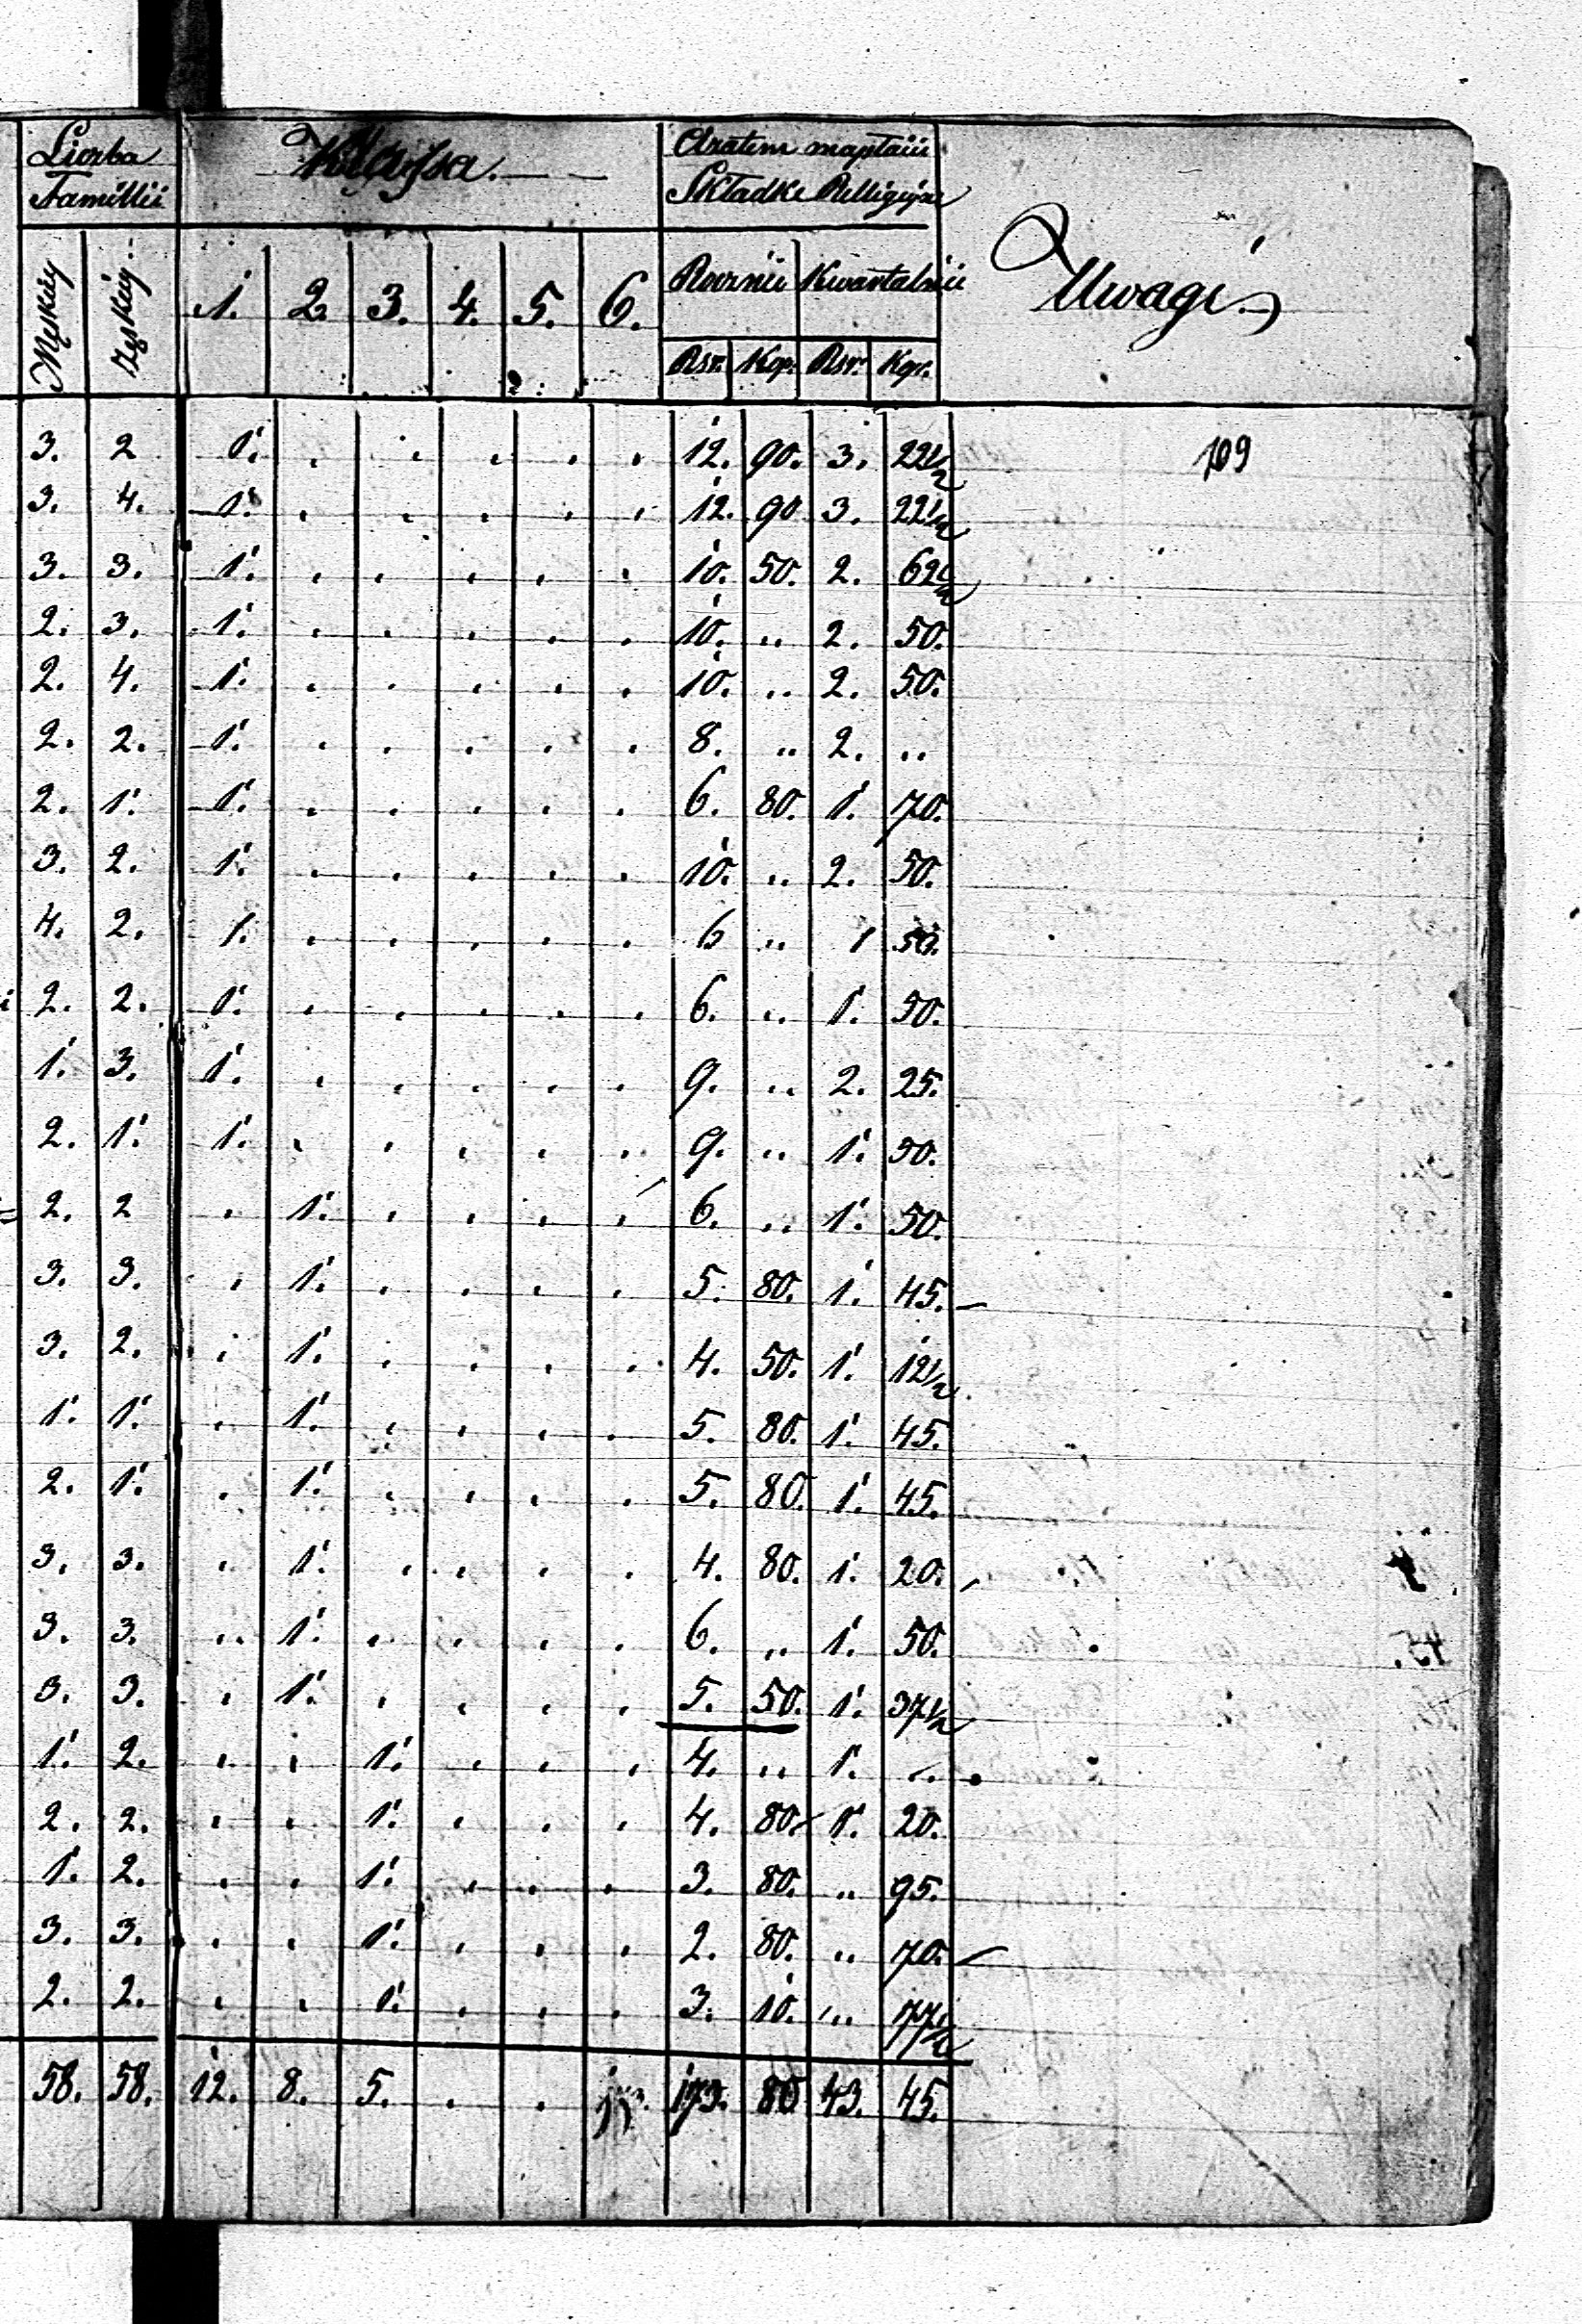 Liczba Klassa. A zatem ma płacić
Familii Składki Religijne
Męskiey Żeńskiey 1. 2. 3. 4. 5. 6. Rocznie Kwartalnie Uwagi
Rsr. Kop. Rsr. Kop.
3. 2 1. . . . . . 12. 90. 3. 22½ 109
3. 4. 1. . . . . . 12. 90 3. 22½
3. 3. 1. . . . . . 10. 50. 2. 62½
2. 3. 1. . . . . . 10. .. 2. 50.
2. 4. 1. . . . . . 10. .. 2. 50.
2. 2. 1. . . . . . 8. .. 2. ..
2. 1. 1. . . . . . 6. 80. 1. 70.
3. 2. 1. . . . . . 10. .. 2. 50.
4. 2. 1. . . . . . 6 .. 1 50.
2. 2. 1. . . . . . 6. .. 1. 50.
1. 3. 1. . . . . . 9. .. 2. 25.
2. 1. 1. . . . . . 9. .. 1. 50.
2. 2 . 1. . . . . 6. .. 1. 50.
3. 3. . 1. . . . . 5. 80. 1. 45.
3. 2. . 1. . . . . 4. 50. 1. 12½
1. 1. . 1. . . . . 5. 80. 1. 45.
2. 1. . 1. . . . . 5. 80. 1. 45.
3. 3. . 1. . . . . 4. 80. 1. 20.
3. 3. .. 1. . . . . 6. .. 1. 50.
3. 3. . 1. . . . . 5. 50. 1. 37½
1. 2. . . 1. . . . 4. .. 1. ..
2. 2. . . 1. . . . 4. 80. 1. 20.
1. 2. . . 1. . . . 3. 80. .. 95.
3. 3. . . 1. . . . 2. 80. .. 70.
2. 2. . . 1. . . . 3. 10. .. 77½
58. 58. 12. 8. 5. . . 173. 80 43. 45.